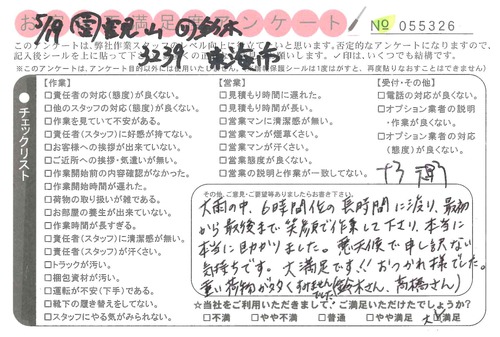 お客様満足度アンケート
№ 055326
5/9 観山 鈴木
3239 東海市
このアンケートは、弊社作業スタッフのレベル向上に役立てたいと思います。否定的なアンケートになりますので、
記入後シールを上に貼って下さい。
✓印は、いくつでも結構です。
※このアンケートは、アンケート目的以外には使用いたしません。
シールは1度はがすと、再度貼りなおすことはできません)
チェックリスト
【作業】
□責任者の対応(態度)が良くない。
□他のスタッフの対応(態度)が良くない。
□作業を見ていて不安がある。
□責任者(スタッフ)に好感が持てない。
□お客様への挨拶が出来ていない。
□ご近所への挨拶・気遣いが無い。
□作業開始前の内容確認がなかった。
□作業開始時間が遅れた。
□荷物の取り扱いが雑である。
□お部屋の養生が出来ていない。
□作業時間が長すぎる。
□責任者(スタッフ)に清潔感が無い。
□責任者(スタッフ)が汗くさい。
□トラックが汚い。
□梱包資材が汚い。
□運転が不安(下手)である。
□靴下の履き替えをしてない。
□スタッフにやる気がみられない。
【営業】
□見積もり時間に遅れた。
□見積もり時間が長い。
□営業マンに清潔感が無い。
□営業マンが煙草くさい。
□営業マンが汗くさい。
□営業態度が良くない。
□営業の説明と作業が一致してない。
【受付・その他】
□電話の対応が良くない。
□オプション業者の説明
・作業が良くない。
□オプション業者の対応
(態度)が良くない。
その他、ご意見・ご要望等ありましたらお書き下さい。
大雨の中、6時間位の長時間に渡り、最初
から最後まで笑顔で作業して下り、本当に
本当に助かりました。悪天候で申し訳ない
気持ちです。大満足です!!おつかれ様でした。
重い荷物が多くすみませんでした(鈴木さん、高橋さん)
☆当社をご利用いただきまして、ご満足いただけたでしょうか?
□不満 □やや不満 □普通 □やや満足 大満足